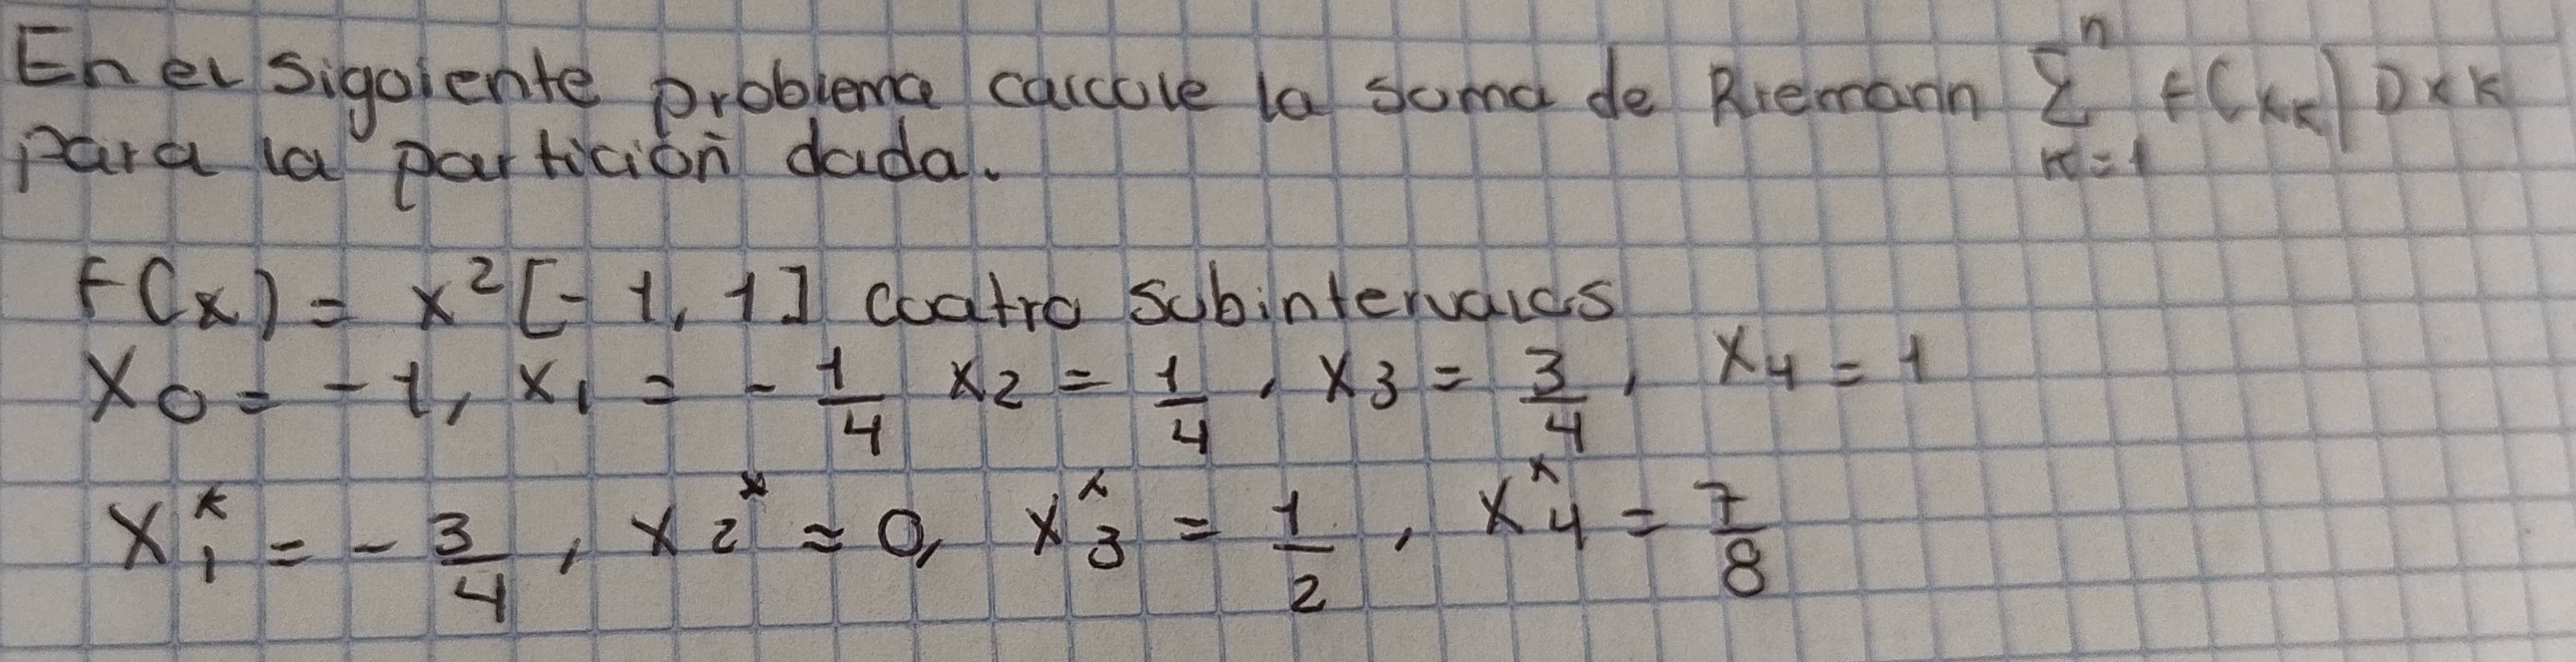 En el siguiente problema calcule la suma de Riemann \sum_{k=1}^{n} f(x_k) Dxk
para la partición dada.
F(x) = x² [-1, 1] cuatro subintervalos
X₀ = -1, x₁ = -1/4 x₂ = 1/4, x₃ = 3/4, x₄ = 1
X₁* = -3/4, x₂* = 0, x₃* = 1/2, x₄* = 7/8